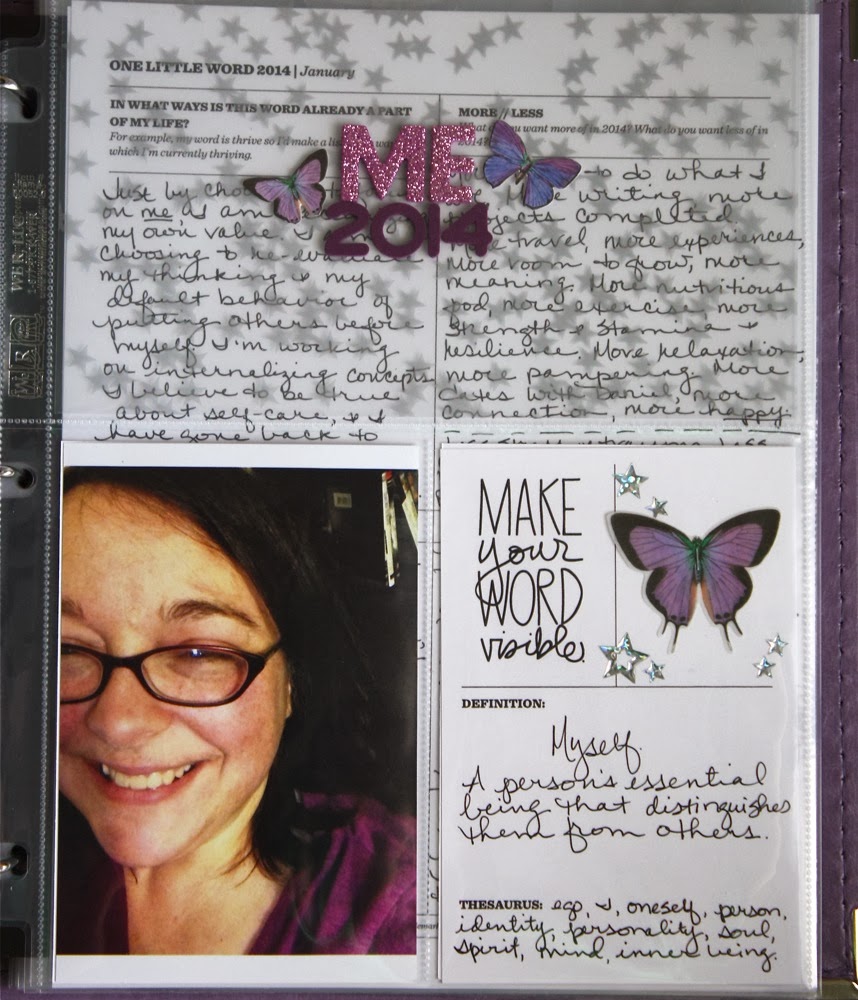 ONE LITTLE WORD 2014 | January
IN WHAT WAYS IS THIS WORD ALREADY A PART
OF MY LIFE?
For example, my word is thrive so I'd make a
which I'm currently thriving.
ME
2014
Just by
on me as
my own value. I
choosing to re-evaluate
my thinking & my
default behavior of
putting others before
myself I'm working
on internalizing concepts
I believe to be true
about self-care, & I
have gone back to
MORE // LESS
you want more of in 2014? What do you want less of in
2014?
to do what I
writing, more
projects completed
travel, more experiences,
more room to grow, more
meaning. More nutritious
food, more exercise, more
strength & stamina &
resilience. More relaxation,
more pampering. More
dates with Daniel, more
connection, more happy.
MAKE
your
WORD
visible.
DEFINITION:
Myself.
A person's essential
being that distinguishes
them from others.
THESAURUS: ego, I, oneself, person,
identity, personality, soul,
spirit, mind, inner being.